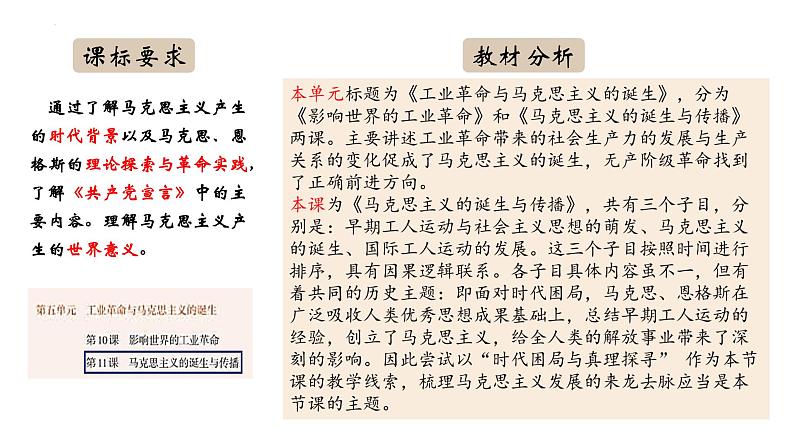 课标要求
通过了解马克思主义产生
的时代背景以及马克思、恩
格斯的理论探索与革命实践，
了解《共产党宣言》中的主
要内容。理解马克思主义产
生的世界意义。
第五单元 工业革命与马克思主义的诞生
第10课 影响世界的工业革命
第11课 马克思主义的诞生与传播
教材分析
本单元标题为《工业革命与马克思主义的诞生》，分为
《影响世界的工业革命》和《马克思主义的诞生与传播》
两课。主要讲述工业革命带来的社会生产力的发展与生产
关系的变化促成了马克思主义的诞生，无产阶级革命找到
了正确前进方向。
本课为《马克思主义的诞生与传播》，共有三个子目，分
别是：早期工人运动与社会主义思想的萌发、马克思主义
的诞生、国际工人运动的发展。这三个子目按照时间进行
排序，具有因果逻辑联系。各子目具体内容虽不一，但有
着共同的历史主题：即面对时代困局，马克思、恩格斯在
广泛吸收人类优秀思想成果基础上，总结早期工人运动的
经验，创立了马克思主义，给全人类的解放事业带来了深
刻的影响。因此尝试以“时代困局与真理探寻” 作为本节
课的教学线索，梳理马克思主义发展的来龙去脉应当是本
节课的主题。